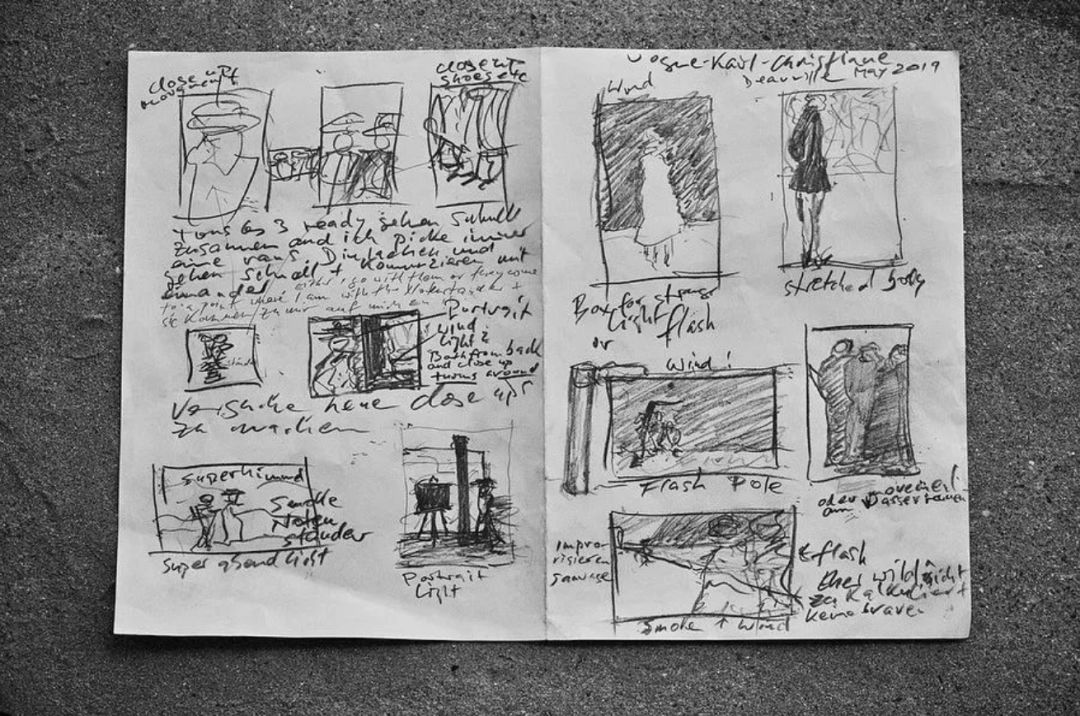 close up
movement
close up
shoes etc
tons bis 3 ready gehen schnell
zusammen and ich picke immer
eine raus. Die lachen und
gehen schnell + kommunizieren mit
einander either I go with them or they come
to a point where I am with the Notenständer +
sie kommen zu mir auf mich zu
Portrait
wind
Light 2
Both from back
and close up
turns around
Versuche keine close ups
zu machen
superhimmel
Smoke
Noten
ständer
super abendlicht
Portrait
Light
Vogue-Karl-Christiane
Deauville MAY 2019
Wind
stretched body
Box for strange
Light flash
or
Wind!
Flash Pole
oder
am Wasser
Impro-
visieren
sauvage
+ flash
eher wild nicht
zu kalkuliert
keine braven
Smoke + Wind